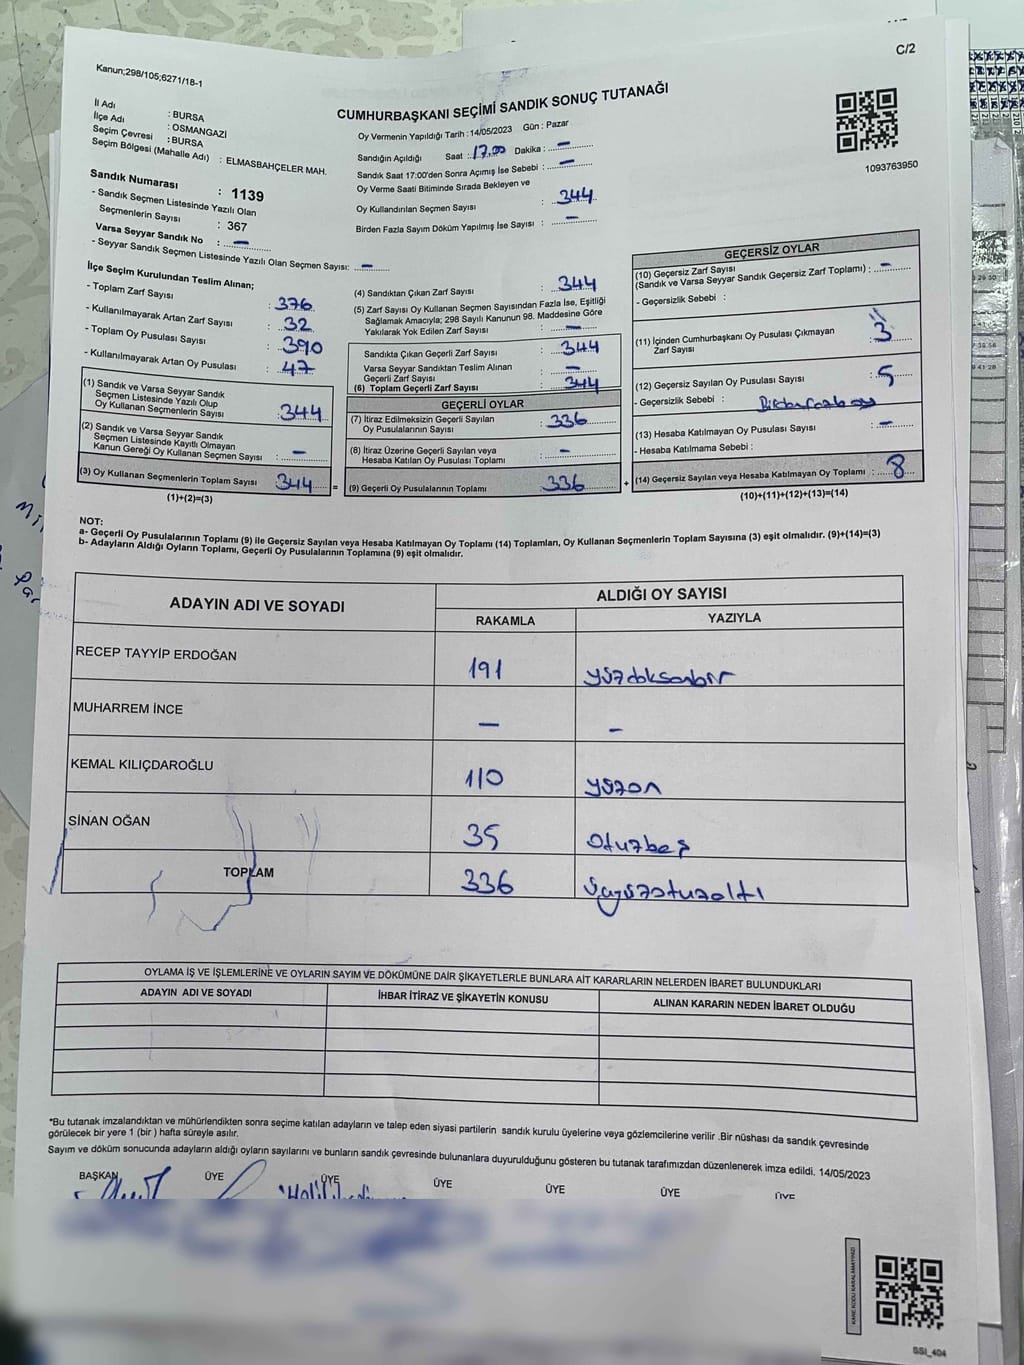 C/2
Kanun;298/105;6271/18-1
CUMHURBAŞKANI SEÇİMİ SANDIK SONUÇ TUTANAĞI
İl Adı : BURSA
İlçe Adı : OSMANGAZİ
Seçim Çevresi : BURSA
Seçim Bölgesi (Mahalle Adı) : ELMASBAHÇELER MAH.
Sandık Numarası : 1139
- Sandık Seçmen Listesinde Yazılı Olan
Seçmenlerin Sayısı : 367
Varsa Seyyar Sandık No : –
- Seyyar Sandık Seçmen Listesinde Yazılı Olan Seçmen Sayısı: –
Oy Vermenin Yapıldığı Tarih : 14/05/2023 Gün : Pazar
Sandığın Açıldığı Saat : 17.00 Dakika : –
Sandık Saat 17:00'den Sonra Açımış İse Sebebi : –
Oy Verme Saati Bitiminde Sırada Bekleyen ve
Oy Kullandırılan Seçmen Sayısı : 344
Birden Fazla Sayım Döküm Yapılmış İse Sayısı : –
1093763950
İlçe Seçim Kurulundan Teslim Alınan;
- Toplam Zarf Sayısı : 376
- Kullanılmayarak Artan Zarf Sayısı : 32
- Toplam Oy Pusulası Sayısı : 390
- Kullanılmayarak Artan Oy Pusulası : 47
(1) Sandık ve Varsa Seyyar Sandık
Seçmen Listesinde Yazılı Olup
Oy Kullanan Seçmenlerin Sayısı : 344
(2) Sandık ve Varsa Seyyar Sandık
Seçmen Listesinde Kayıtlı Olmayan
Kanun Gereği Oy Kullanan Seçmen Sayısı : –
(3) Oy Kullanan Seçmenlerin Toplam Sayısı : 344
(1)+(2)=(3)
(4) Sandıktan Çıkan Zarf Sayısı : 344
(5) Zarf Sayısı Oy Kullanan Seçmen Sayısından Fazla İse, Eşitliği
Sağlamak Amacıyla; 298 Sayılı Kanunun 98. Maddesine Göre
Yakılarak Yok Edilen Zarf Sayısı : –
Sandıkta Çıkan Geçerli Zarf Sayısı : 344
Varsa Seyyar Sandıktan Teslim Alınan
Geçerli Zarf Sayısı : –
(6) Toplam Geçerli Zarf Sayısı : 344
GEÇERLİ OYLAR
(7) İtiraz Edilmeksizin Geçerli Sayılan
Oy Pusulalarının Sayısı : 336
(8) İtiraz Üzerine Geçerli Sayılan veya
Hesaba Katılan Oy Pusulası Toplamı : –
= (9) Geçerli Oy Pusulalarının Toplamı 336 +
GEÇERSİZ OYLAR
(10) Geçersiz Zarf Sayısı
(Sandık ve Varsa Seyyar Sandık Geçersiz Zarf Toplamı) : –
- Geçersizlik Sebebi :
(11) İçinden Cumhurbaşkanı Oy Pusulası Çıkmayan
Zarf Sayısı : 3
(12) Geçersiz Sayılan Oy Pusulası Sayısı : 5
- Geçersizlik Sebebi : Birden fazla oy
(13) Hesaba Katılmayan Oy Pusulası Sayısı : –
- Hesaba Katılmama Sebebi :
(14) Geçersiz Sayılan veya Hesaba Katılmayan Oy Toplamı : 8
(10)+(11)+(12)+(13)=(14)
NOT:
a- Geçerli Oy Pusulalarının Toplamı (9) ile Geçersiz Sayılan veya Hesaba Katılmayan Oy Toplamı (14) Toplamları, Oy Kullanan Seçmenlerin Toplam Sayısına (3) eşit olmalıdır. (9)+(14)=(3)
b- Adayların Aldığı Oyların Toplamı, Geçerli Oy Pusulalarının Toplamına (9) eşit olmalıdır.
ADAYIN ADI VE SOYADI
ALDIĞI OY SAYISI
RAKAMLA YAZIYLA
RECEP TAYYİP ERDOĞAN 191 yüzdoksanbir
MUHARREM İNCE – –
KEMAL KILIÇDAROĞLU 110 yüzon
SİNAN OĞAN 35 Otuzbeş
TOPLAM 336 üçyüzotuzaltı
OYLAMA İŞ VE İŞLEMLERİNE VE OYLARIN SAYIM VE DÖKÜMÜNE DAİR ŞİKAYETLERLE BUNLARA AİT KARARLARIN NELERDEN İBARET BULUNDUKLARI
ADAYIN ADI VE SOYADI İHBAR İTİRAZ VE ŞİKAYETİN KONUSU ALINAN KARARIN NEDEN İBARET OLDUĞU
*Bu tutanak imzalandıktan ve mühürlendikten sonra seçime katılan adayların ve talep eden siyasi partilerin sandık kurulu üyelerine veya gözlemcilerine verilir .Bir nüshası da sandık çevresinde
görülecek bir yere 1 (bir ) hafta süreyle asılır.
Sayım ve döküm sonucunda adayların aldığı oyların sayılarını ve bunların sandık çevresinde bulunanlara duyurulduğunu gösteren bu tutanak tarafımızdan düzenlenerek imza edildi. 14/05/2023
BAŞKAN ÜYE ÜYE ÜYE ÜYE ÜYE ÜYE
KARE KODU KARALAMAYINIZ!
SSI_404